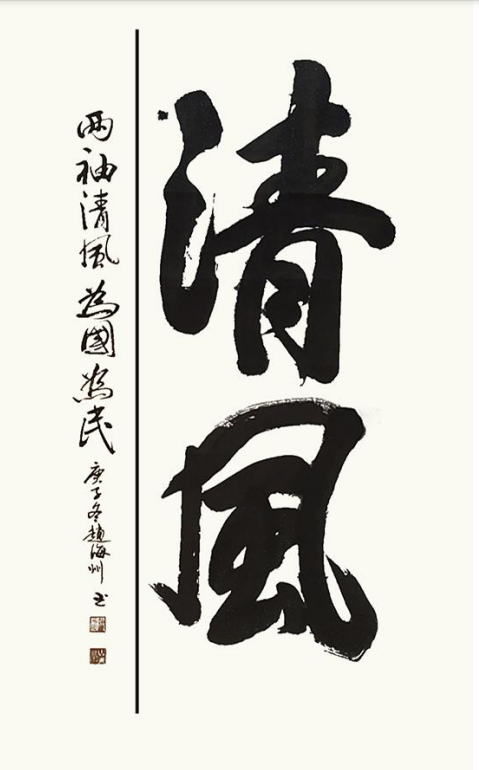 清風
两袖清風為國為民
庚子冬趙海州书